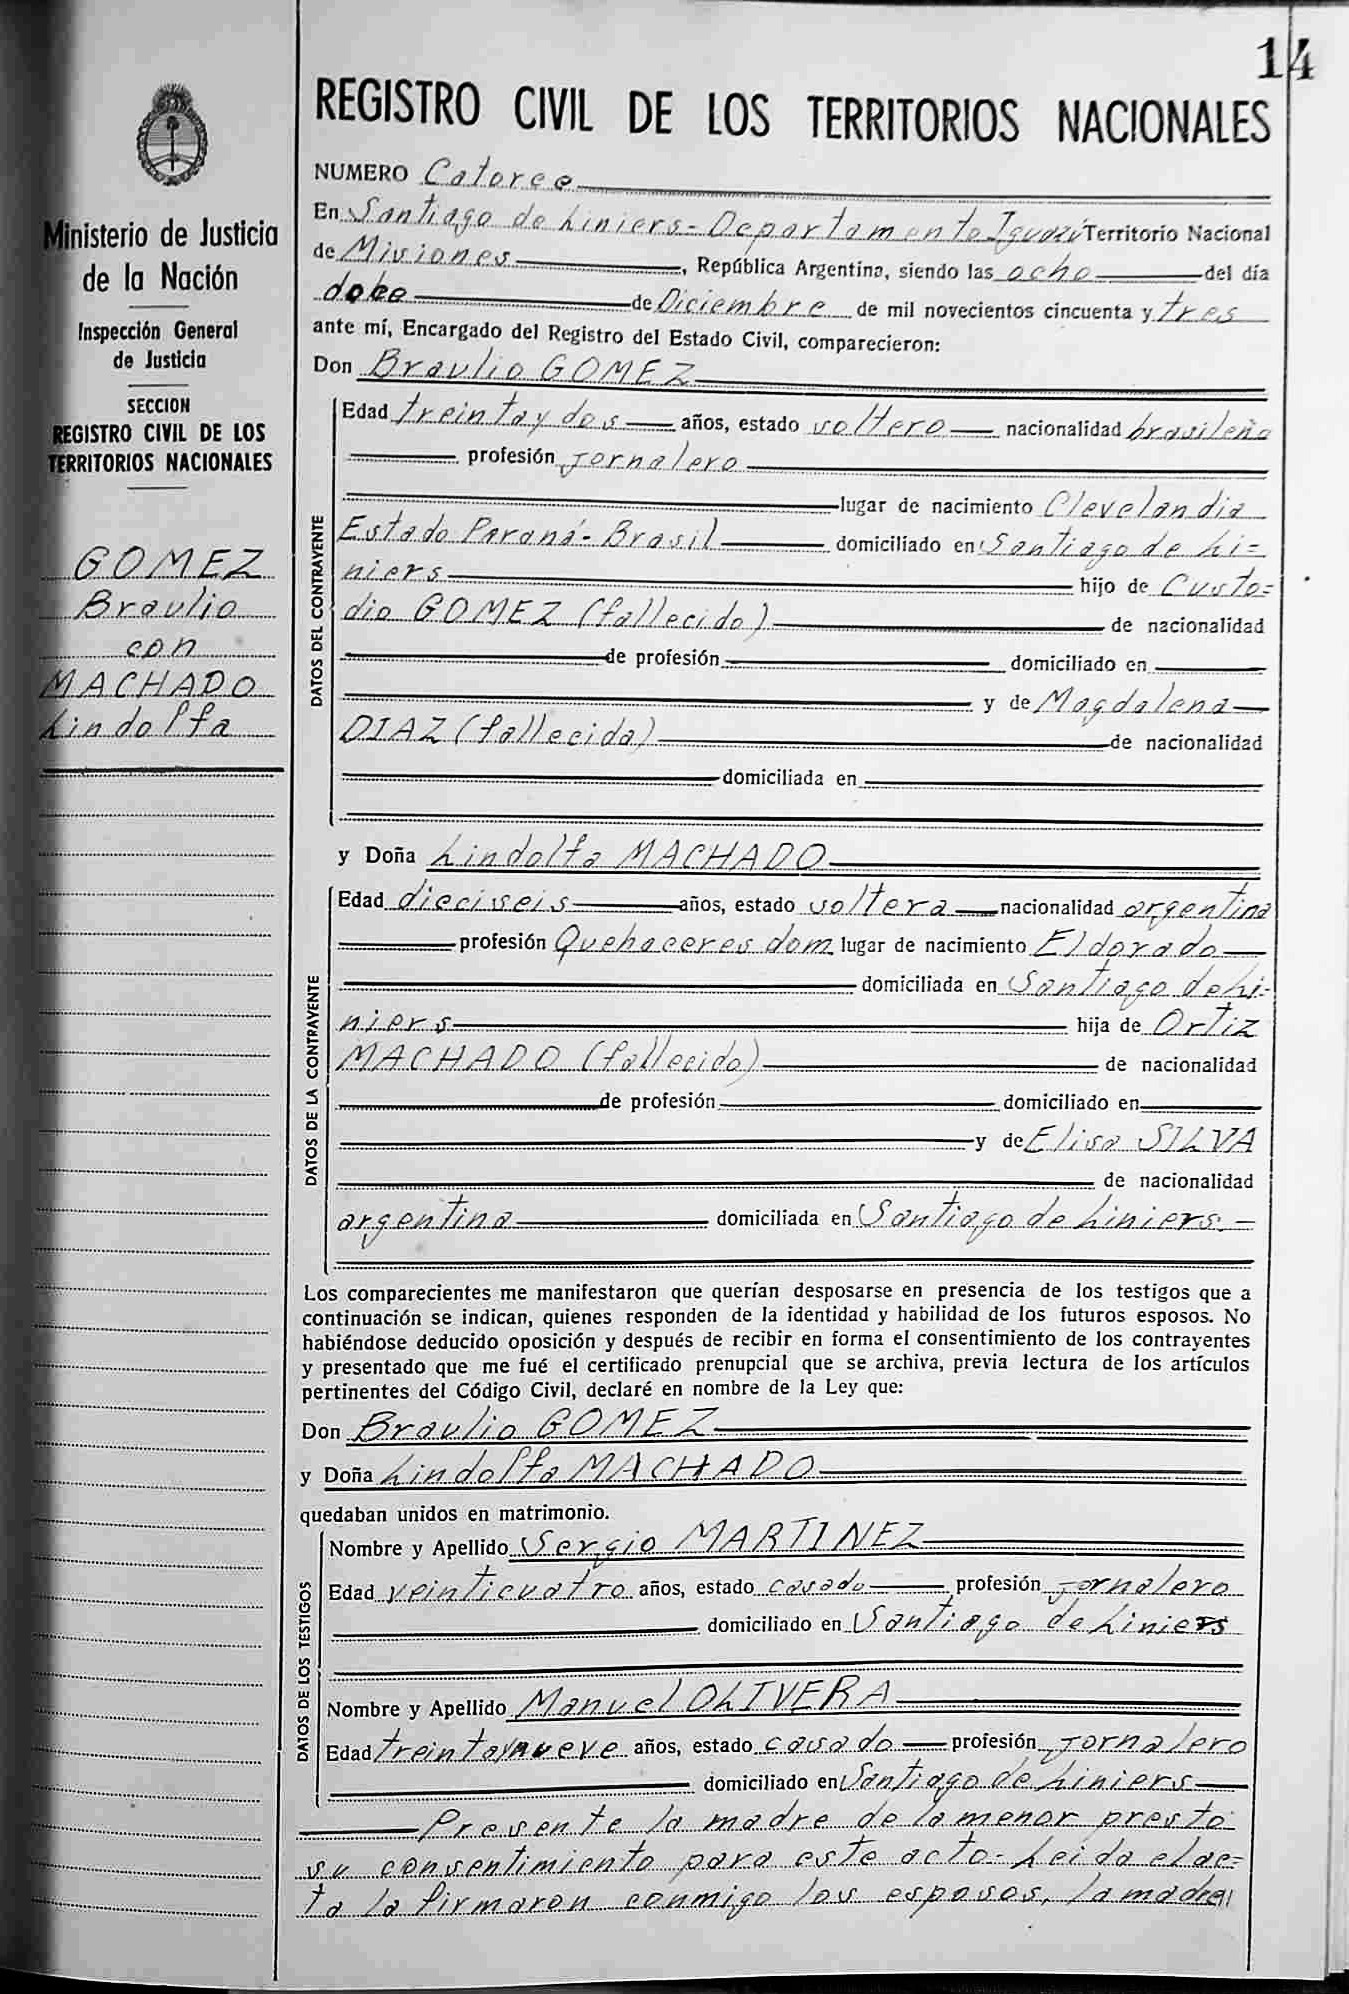 14
REGISTRO CIVIL DE LOS TERRITORIOS NACIONALES
Ministerio de Justicia
de la Nación
Inspección General
de Justicia
SECCION
REGISTRO CIVIL DE LOS
TERRITORIOS NACIONALES
GOMEZ
Braulio
con
MACHADO
Lindolfa
NUMERO Catorce
En Santiago de Liniers-Departamento Iguazú Territorio Nacional
de Misiones, República Argentina, siendo las ocho del día
doce de Diciembre de mil novecientos cincuenta y tres
ante mí, Encargado del Registro del Estado Civil, comparecieron:
Don Braulio GOMEZ
DATOS DEL CONTRAVENTE
Edad treinta y dos años, estado soltero nacionalidad brasileña
profesión jornalero
lugar de nacimiento Clevelandia
Estado Paraná-Brasil domiciliado en Santiago de Li=
niers hijo de Custo=
dio GOMEZ (fallecido) de nacionalidad
de profesión domiciliado en
y de Magdalena
DIAZ (fallecida) de nacionalidad
domiciliada en
y Doña Lindolfa MACHADO
DATOS DE LA CONTRAVENTE
Edad dieciseis años, estado soltera nacionalidad argentina
profesión Quehaceres dom. lugar de nacimiento Eldorado
domiciliada en Santiago de Li-
niers hija de Ortiz
MACHADO (fallecido) de nacionalidad
de profesión domiciliado en
y de Elisa SILVA
de nacionalidad
argentina domiciliada en Santiago de Liniers.-
Los comparecientes me manifestaron que querían desposarse en presencia de los testigos que a
continuación se indican, quienes responden de la identidad y habilidad de los futuros esposos. No
habiéndose deducido oposición y después de recibir en forma el consentimiento de los contrayentes
y presentado que me fué el certificado prenupcial que se archiva, previa lectura de los artículos
pertinentes del Código Civil, declaré en nombre de la Ley que:
Don Braulio GOMEZ
y Doña Lindolfa MACHADO
quedaban unidos en matrimonio.
DATOS DE LOS TESTIGOS
Nombre y Apellido Sergio MARTINEZ
Edad veinticuatro años, estado casado profesión jornalero
domiciliado en Santiago de Liniers
Nombre y Apellido Manuel OLIVERA
Edad treinta y nueve años, estado casado profesión jornalero
domiciliado en Santiago de Liniers
Presente la madre de la menor prestó
su consentimiento para este acto- Leida el ac=
ta la firmaron conmigo los esposos, la madre